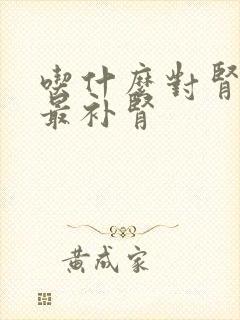 喫什麼對腎
最补腎
黃成家